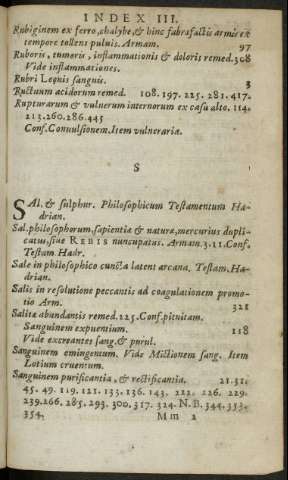 INDEX III.
Rubiginem ex ferro, chalybe, & hinc fabrefactis armis ex
tempore tollens puluis. Armam. 97
Ruboris, tumoris, inflammationis & doloris remed. 308
Vide inflammationes.
Rubri Lequis sanguis. 3
Ructuum acidorum remed. 108. 197. 225. 281. 417.
Rupturarum & vulnerum internorum ex casu alto. 114.
213. 260. 286. 445
Conf. Conuulsionem. Item vulneraria.
S
SAl. & sulphur. Philosophicum Testamentum Ha-
drian.
Sal. philosophorum, sapientia & natura, mercurius dupli-
catus, siue REBIS nuncupatus. Armam. 3. 11. Conf.
Testam Hadr.
Sale in philosophico cuncta latent arcana. Testam. Ha-
drian.
Salis in resolutione peccantis ad coagulationem promo-
tio Arm. 321
Saliua abundantis remed. 225. Conf. pituitam.
Sanguinem expuentium. 118
Vide excreantes sang. & purul.
Sanguinem emingentum. Vide Mictionem sang. Item
Lotium cruentum.
Sanguinem purificantia, & rectificantia. 21. 31.
45. 49. 119. 121. 133. 136. 143. 222. 226. 229.
239. 266. 285. 293. 300. 317. 324. N. B. 344. 353.
354. Mm 2